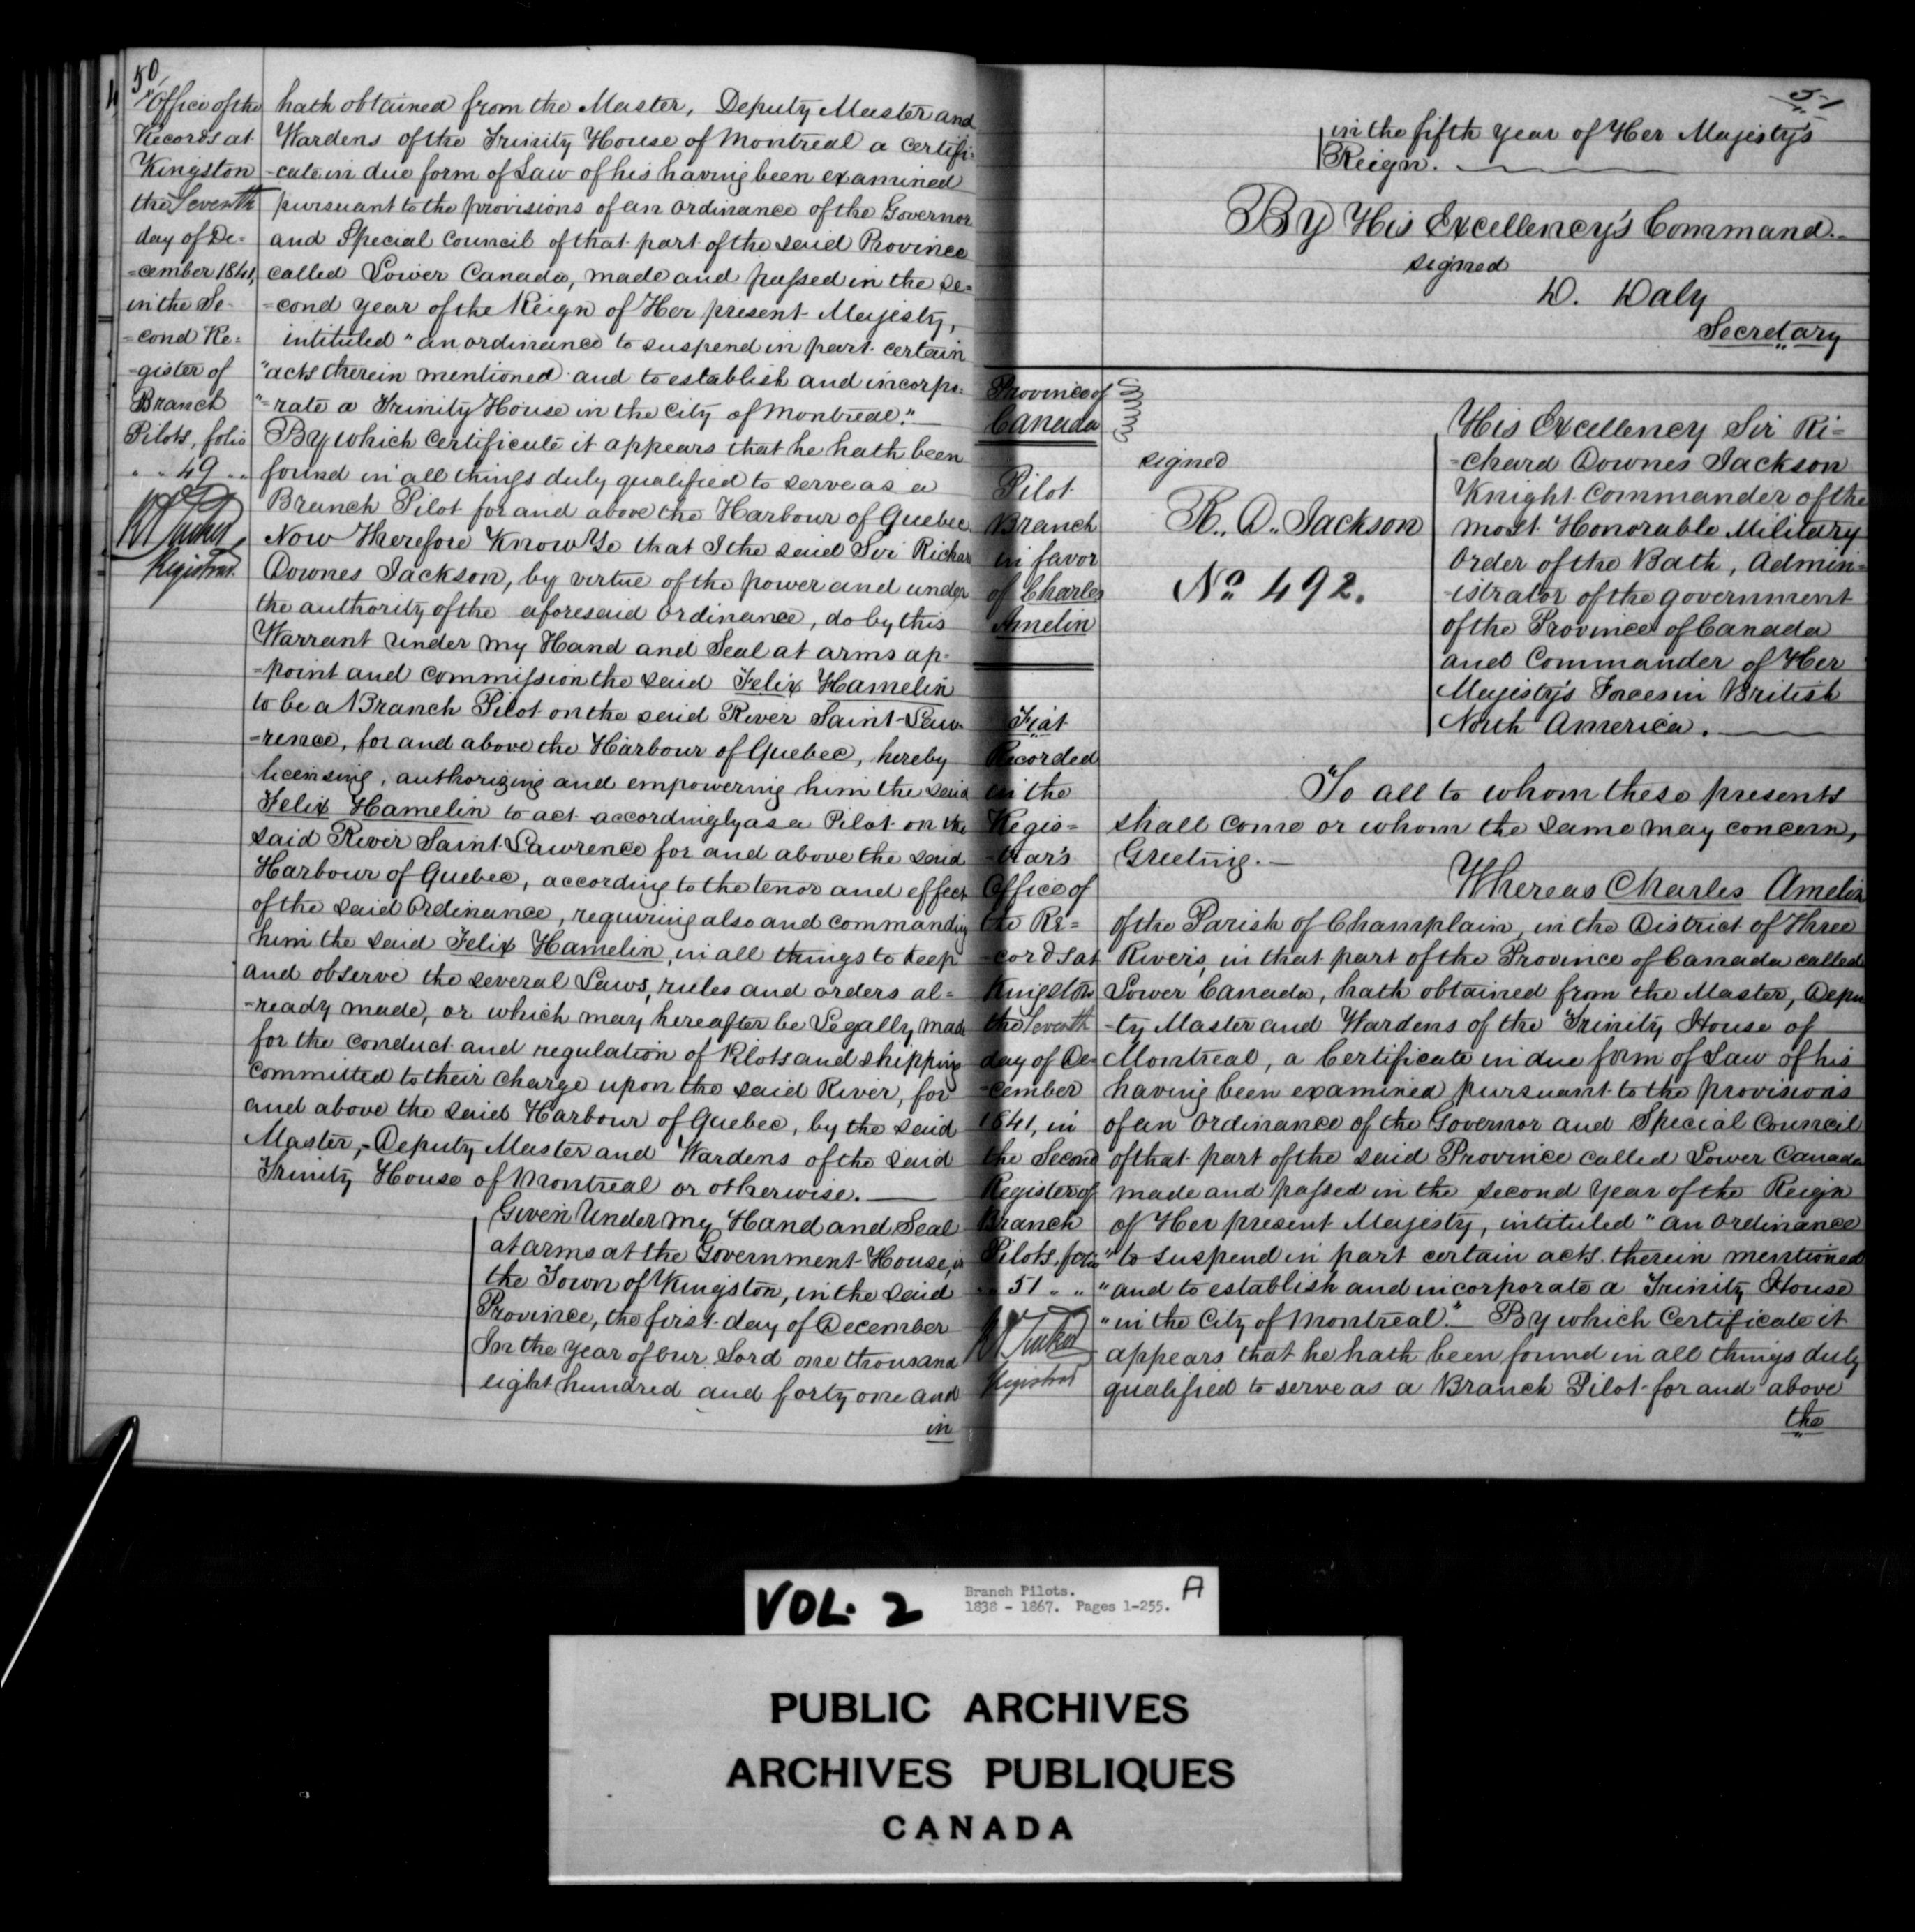 50
Office of the
Records at
Kingston
the Seventh
day of De=
=cember 1841,
in the Se-
=cond Re=
=gister of
Branch
Pilots, folio
" " 49 " "
Registrar.
hath obtained from the Master, Deputy Master and
Wardens of the Trinity House of Montreal a certifi-
-cate in due form of Law of his having been examined
pursuant to the provisions of an ordinance of the Governor
and Special Council of that part of the said Province
called Lower Canada, made and passed in the Se=
=cond year of the Reign of Her present Majesty,
intituled "an ordinance to suspend in part certain
"acts therein mentioned and to establish and incorpo=
"=rate a Trinity House in the City of Montreal."—
By which certificate it appears that he hath been
found in all things duly qualified to serve as a
Branch Pilot for and above the Harbour of Quebec
Now Therefore Know Ye that I the said Sir Richard
Downes Jackson, by virtue of the power and under
the authority of the aforesaid ordinance, do by this
Warrant under my Hand and Seal at arms ap-
=point and commission the said Felix Hamelin
to be a Branch Pilot on the said River Saint-Law-
=rence, for and above the Harbour of Quebec, hereby
licensing, authorizing and empowering him the said
Felix Hamelin to act accordingly as a Pilot on the
said River Saint Lawrence for and above the said
Harbour of Quebec, according to the tenor and effect
of the said ordinance, requiring also and commanding
him the said Felix Hamelin, in all things to keep
and observe the several Laws, rules and orders al=
-ready made, or which may hereafter be Legally made
for the conduct and regulation of Pilots and shipping
committed to their charge upon the said River, for
and above the said Harbour of Quebec, by the said
Master, Deputy Master and Wardens of the said
Trinity House of Montreal or otherwise.—
Given Under my Hand and Seal
at arms at the Government House, in
the Town of Kingston, in the said
Province, the first day of December
In the year of our Lord one thousand
eight hundred and forty one and
in
51
in the fifth year of Her Majesty's
Reign.
By His Excellency's Command.
signed
D. Daly
Secretary
Province of
Canada
Pilot
Branch
in favor
of Charles
Amelin
Fiat
Recorded
in the
Regis=
-trar's
Office of
the Re=
-cords at
Kingston
the Seventh
day of De=
-cember
1841, in
the Second
Register of
Branch
Pilots, folio
" 51 " "
Registrar
signed
R. D. Jackson
No. 492.
His Excellency Sir Ri=
=chard Downes Jackson
Knight Commander of the
most Honorable Military
order of the Bath, Admin=
-istrator of the government
of the Province of Canada
and Commander of Her
Majesty's Forces in British
North America.
To all to whom these presents
shall come or whom the same may concern,
Greeting.—
Whereas Charles Amelin
of the Parish of Champlain, in the District of Three
Rivers, in that part of the Province of Canada called
Lower Canada, hath obtained from the Master, Depu
-ty Master and Wardens of the Trinity House of
Montreal, a Certificate in due form of Law of his
having been examined pursuant to the provisions
of an ordinance of the Governor and Special Council
of that part of the said Province called Lower Canada
made and passed in the second year of the Reign
of Her present Majesty, intituled "an ordinance
"to suspend in part certain acts therein mentioned
"and to establish and incorporate a Trinity House
"in the City of Montreal."— By which Certificate it
appears that he hath been found in all things duly
qualified to serve as a Branch Pilot for and above
the
VOL. 2
Branch Pilots.
1838 - 1867. Pages 1-255.
A
PUBLIC ARCHIVES
ARCHIVES PUBLIQUES
CANADA